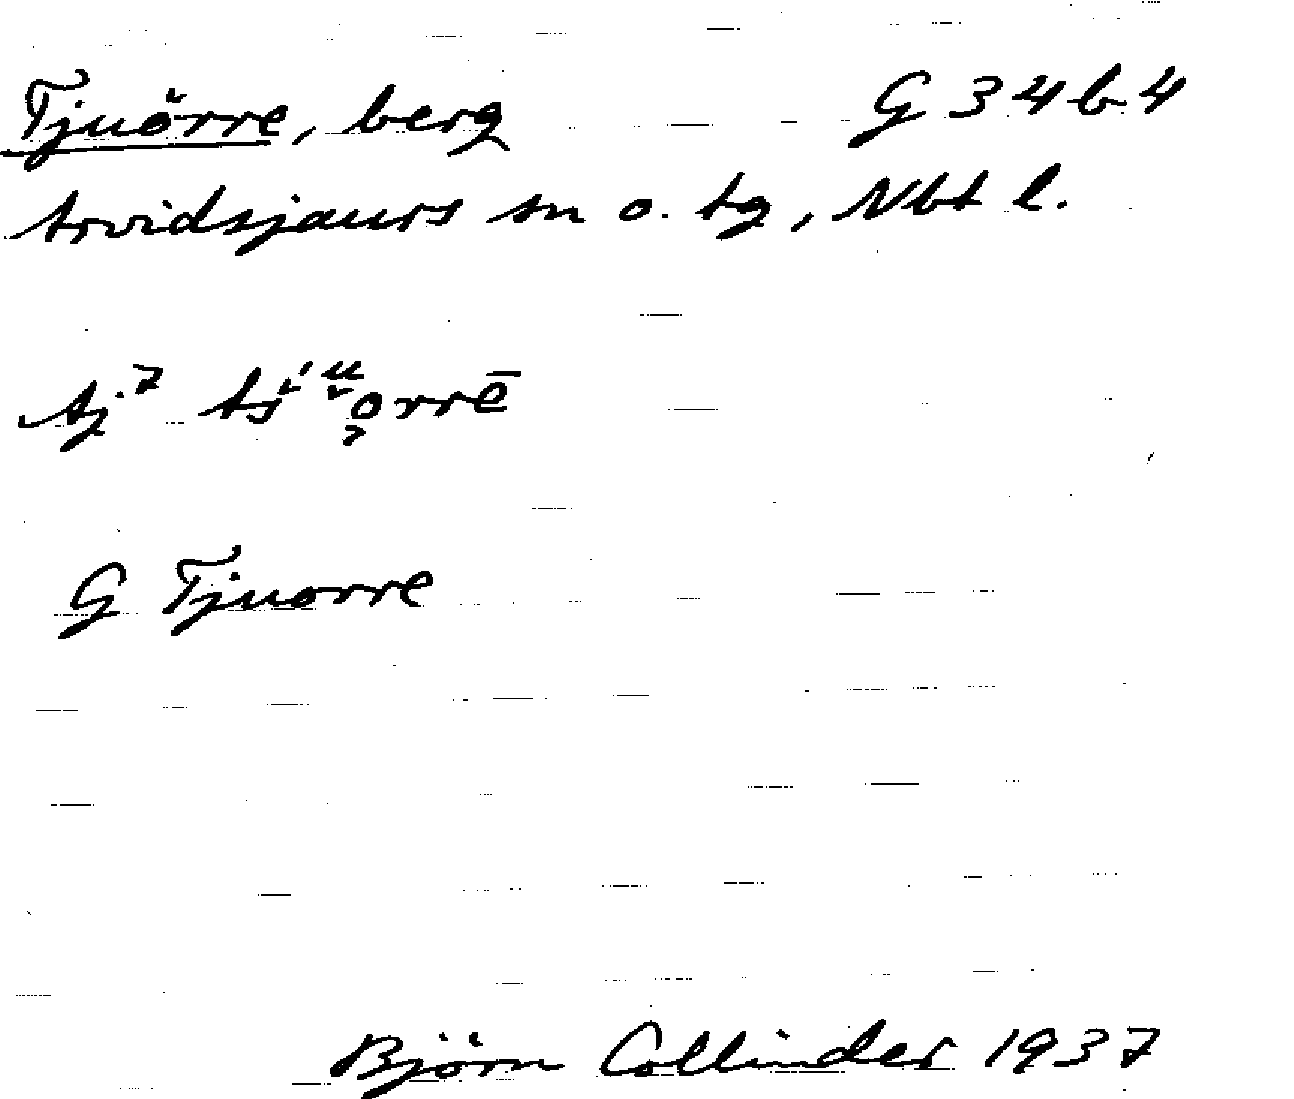 Tjuŏrre, berg G 34 b 4
Arvidsjaurs sn o. tg, Nbt l.
Aj.7
G Tjuorre
Björn Collinder 1937